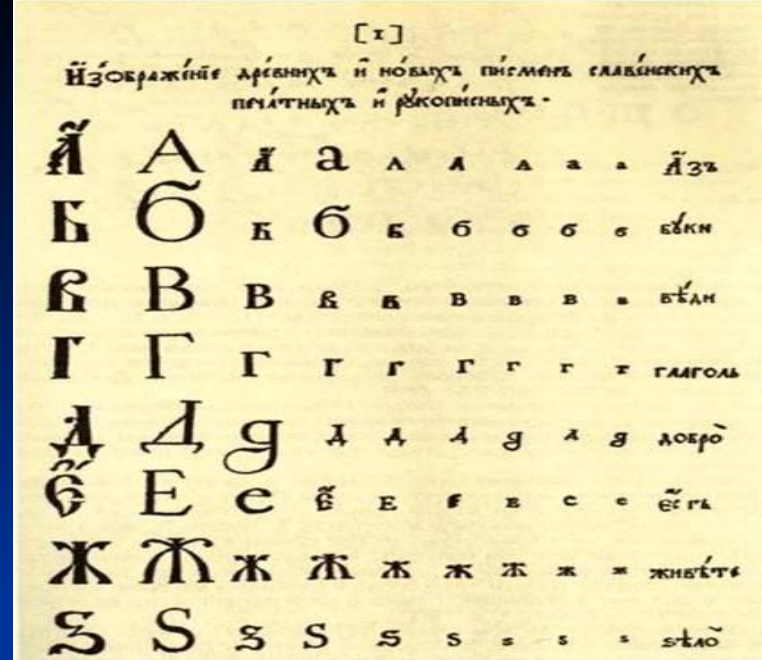 [1]
И҆зѡбраже́нїе дре́внихъ и҆ но́выхъ пи́сменъ славе́нскихъ
печа́тныхъ и҆ рꙋкопи́сныхъ.
А҆́ А А҆́ а А А А а а А҆́зъ
Б Б Б б Б б б б б бꙋ́ки
В В В В В В В В В вѣ́ди
Г Г Г Г Г Г Г Г Г глаголь
Д Д д Д Д Д д Д д добро̀
Є҆́ Е е Є҆́ Е Е Е е е є҆́сть
Ж Ж Ж Ж Ж Ж Ж Ж Ж живѣ́те
Ѕ Ѕ Ѕ Ѕ Ѕ Ѕ Ѕ Ѕ Ѕ ѕѣло̀